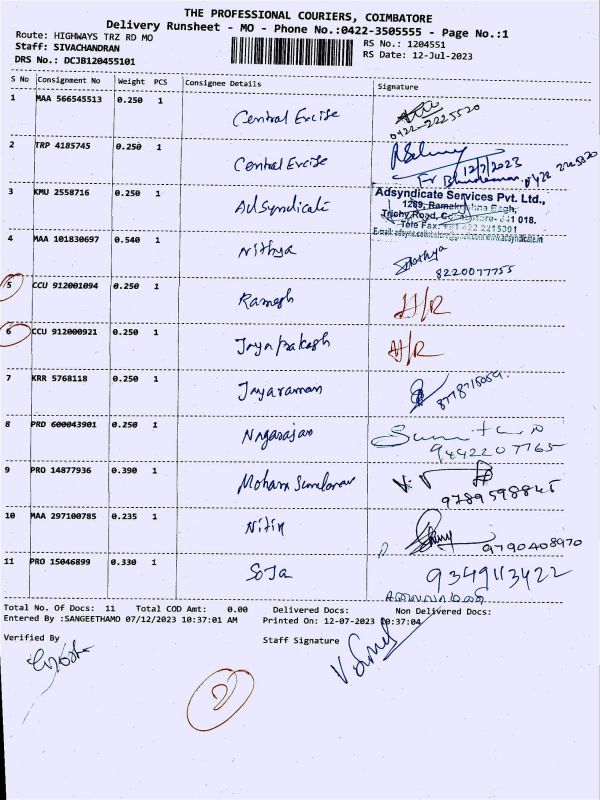 THE PROFESSIONAL COURIERS, COIMBATORE
Delivery Runsheet - MO - Phone No.:0422-3505555 - Page No.:1
Route: HIGHWAYS TRZ RD MO
RS No.: 1204551
Staff: SIVACHANDRAN
RS Date: 12-Jul-2023
DRS No.: DCJB120455101
S No Consignment No Weight PCS Consignee Details Signature
1 MAA 566545513 0.250 1 Central Excise
0422-2225520
2 TRP 4185745 0.250 1 Central Excise
12/7/2023
0422 2225520
3 KMU 2558716 0.250 1 Adsyndicate
Adsyndicate Services Pvt. Ltd.,
1289, Ramakrishna
Trichy Road, 641 018.
Tele Fax: +91 422 2215301
4 MAA 101830697 0.540 1 Nithya
8220077755
5 CCU 912001094 0.250 1 Ramesh H/R
6 CCU 912000921 0.250 1 Jayaprakash H/R
7 KRR 5768118 0.250 1 Jayaraman
8 PRD 600043901 0.250 1 Nagarajan
9442207765
9 PRO 14877936 0.390 1 Mohana Sundaram
9789598845
10 MAA 297100785 0.235 1 Nitin
9790408970
11 PRO 15046899 0.330 1 Soja
9349113422
Total No. Of Docs: 11 Total COD Amt: 0.00 Delivered Docs: Non Delivered Docs:
Entered By :SANGEETHAMO 07/12/2023 10:37:01 AM Printed On: 12-07-2023 10:37:04
Verified By Staff Signature
2